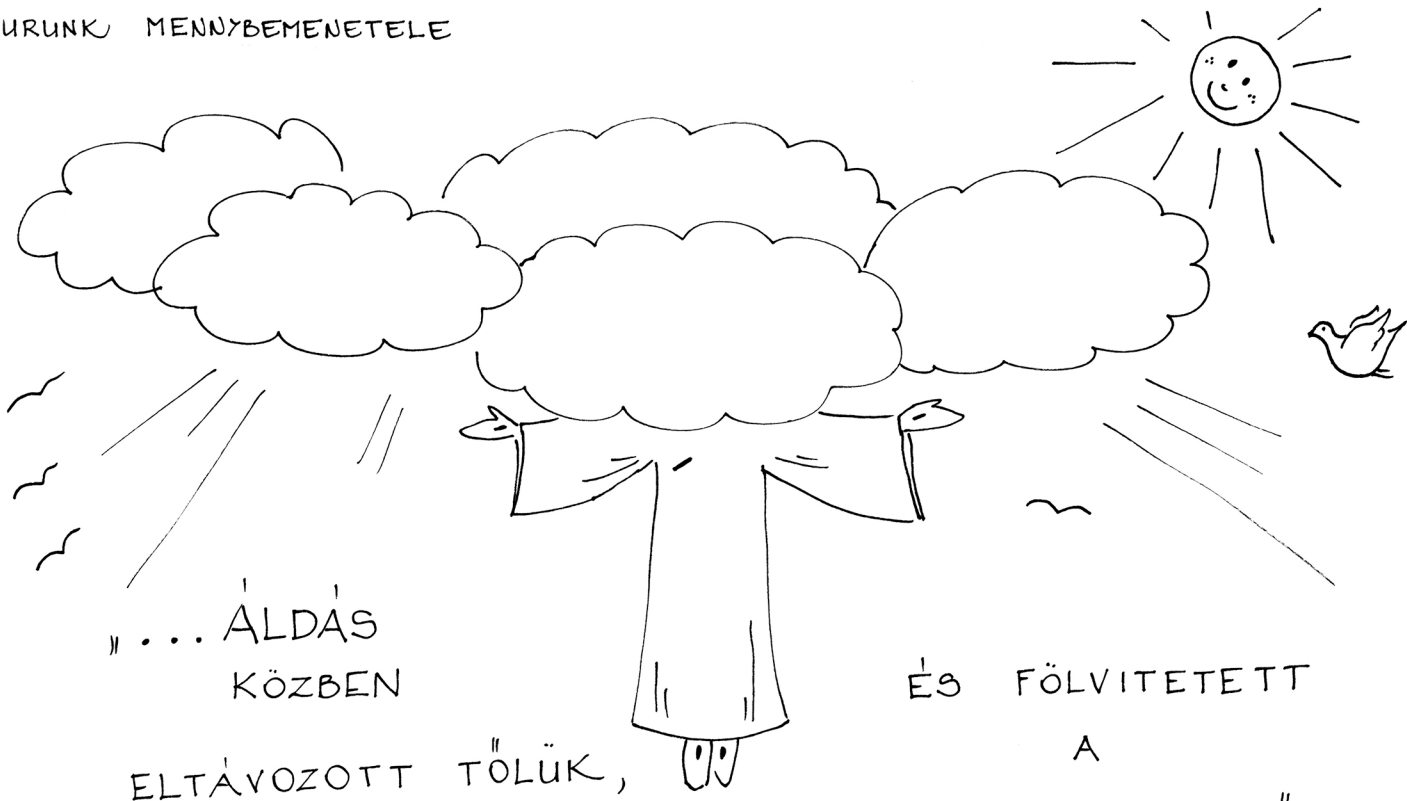 URUNK MENNYBEMENETELE
„... ÁLDÁS
KÖZBEN
ELTÁVOZOTT TŐLÜK,
ÉS FÖLVITETETT
A
"